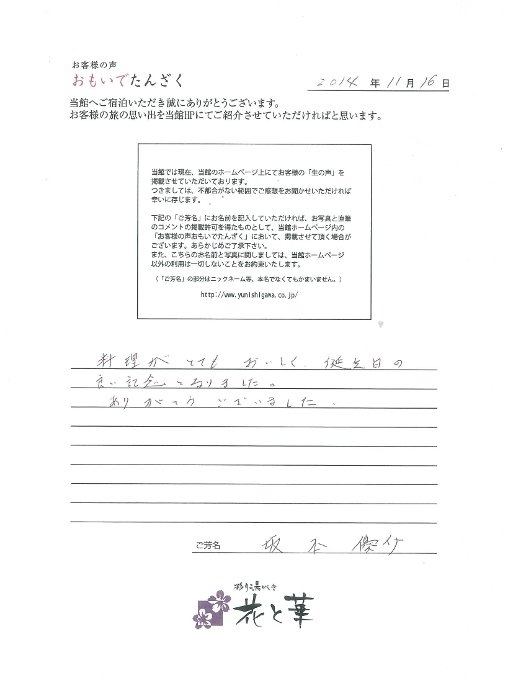 お客様の声
おもいでたんざく
2014 年 11 月 16 日
当館へご宿泊いただき誠にありがとうございます。
お客様の旅の思い出を当館HPにてご紹介させていただければと思います。
当館では現在、当館のホームページ上にてお客様の「生の声」を
掲載させていただいております。
つきましては、不都合がない範囲でご感想をお聞かせいただければ
幸いに存じます。
下記の「ご芳名」にお名前を記入していただければ、お写真と直筆
のコメントの掲載許可を得たものとして、当館ホームページ内の
「お客様の声おもいでたんざく」において、掲載させて頂く場合が
ございます。あらかじめご了承下さい。
また、こちらのお名前と写真に関しましては、当館ホームページ
以外の利用は一切しないことをお約束いたします。
(「ご芳名」の部分はニックネーム等、本名でなくてもかまいません。)
http://www.yunishigawa.co.jp/
料理がとてもおいしく、誕生日の
良い記念となりました。
ありがとうございました。
ご芳名 坂本
花と華